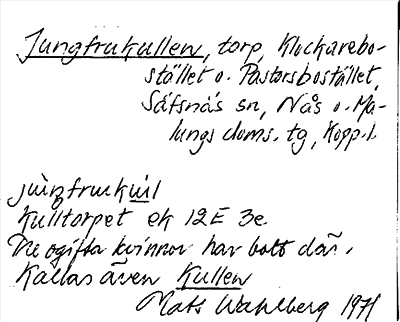 Jungfrukullen, torp, Klockarebo-
stället o. Pastorsbostället,
Säfsnäs sn, Nås o. Ma-
lungs doms. tg, Kopp. l.
jùŋfrukul
Kulltorpet ek 12E 3e
Tre ogifta kvinnor har bott där.
Kallas även Kullen
Mats Wahlberg 1971